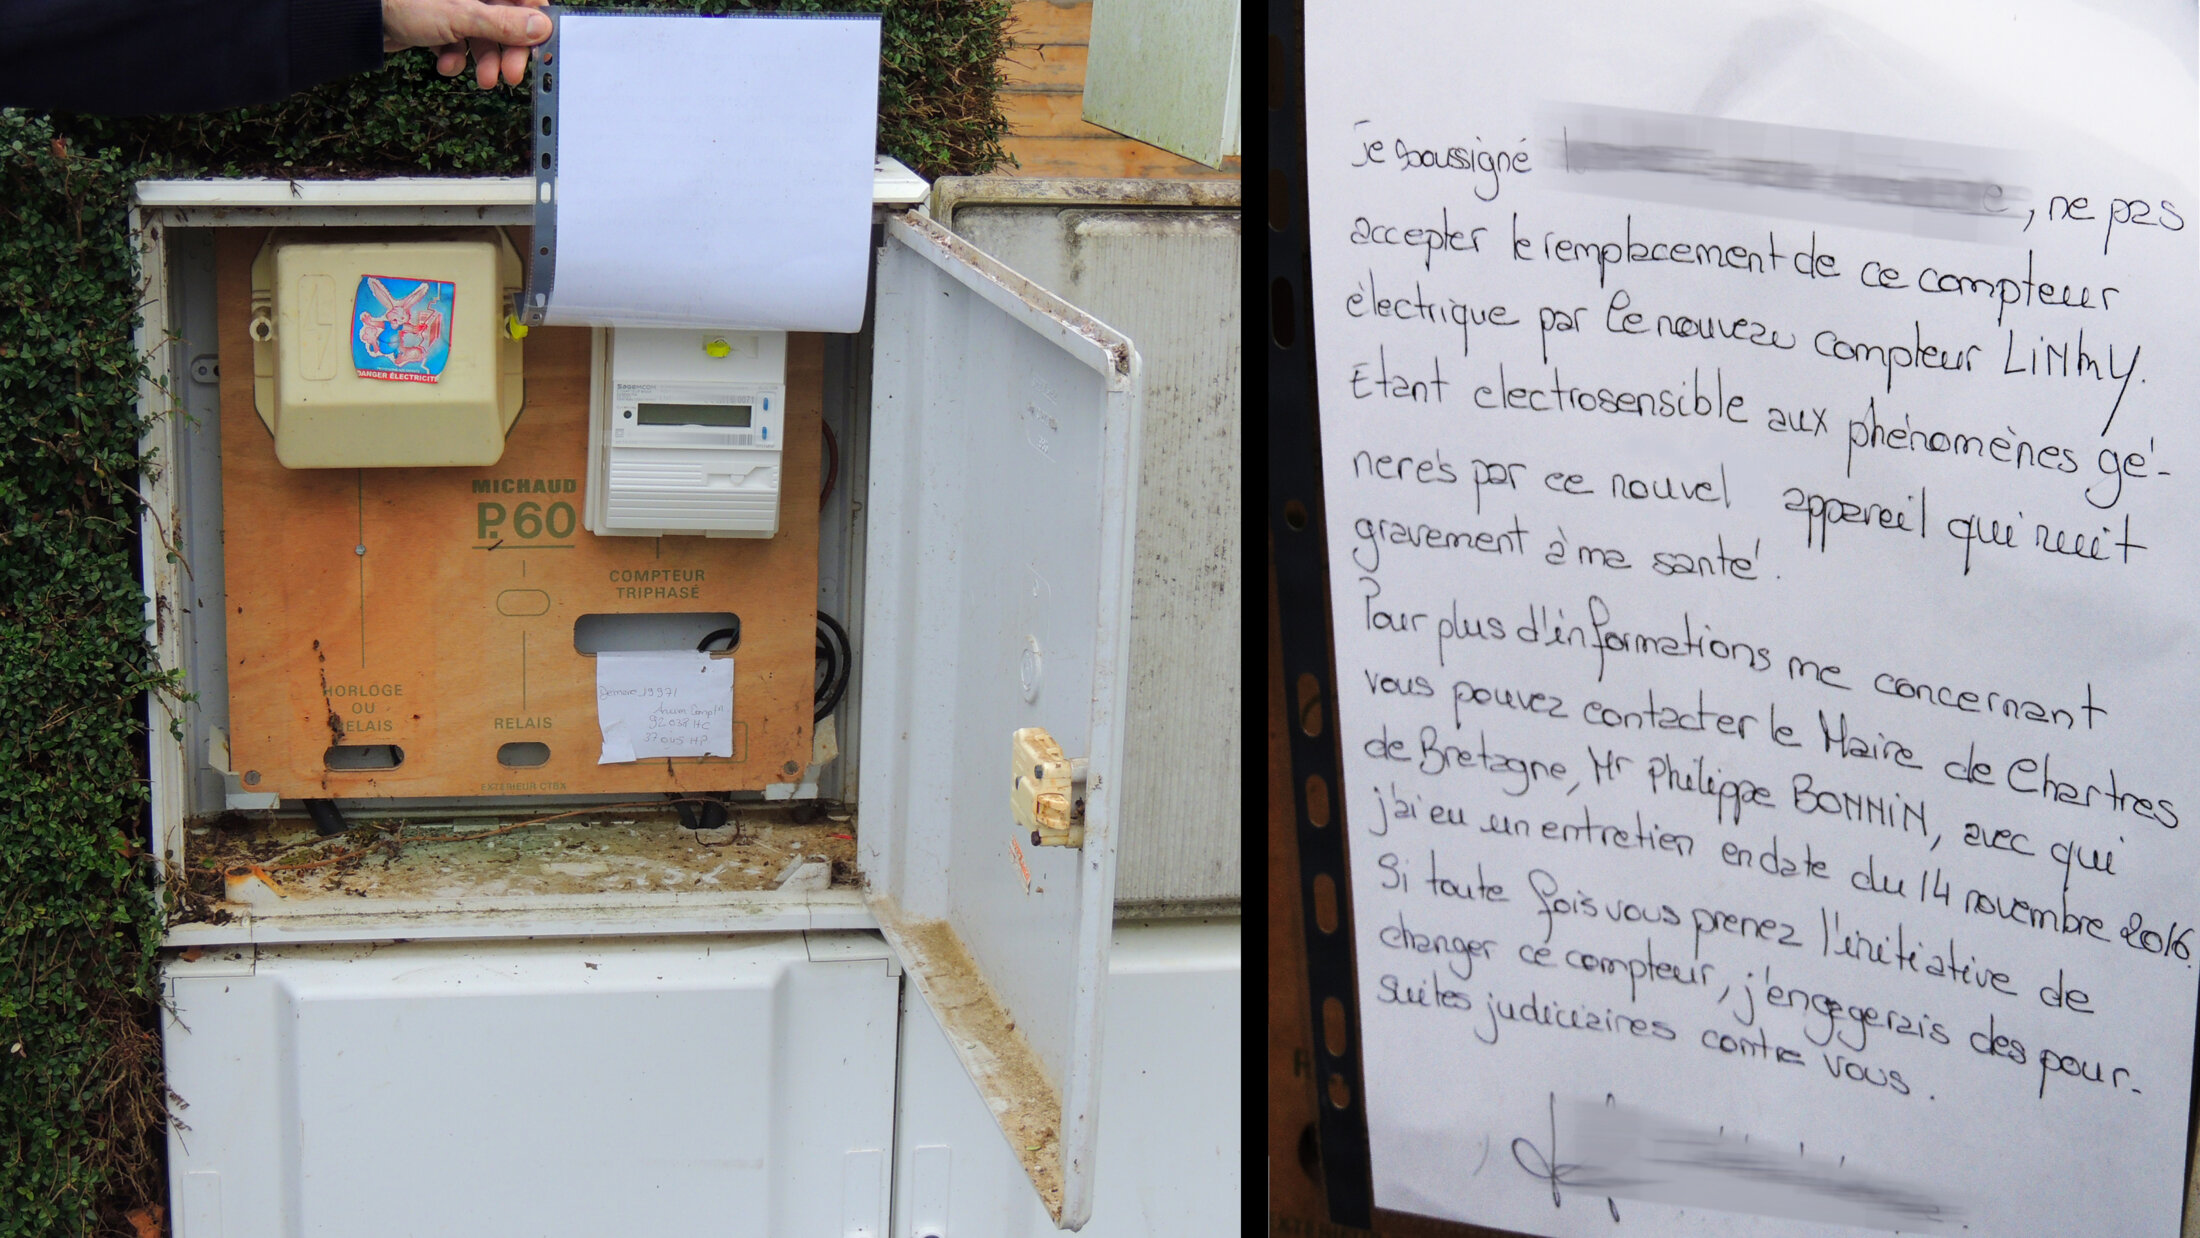 DANGER ÉLECTRICITÉ
sagemcom
MICHAUD
P.60
COMPTEUR
TRIPHASÉ
HORLOGE
OU
RELAIS
RELAIS
EXTERIEUR CTBX
92 038 HC
37 045 HP
Je soussigné
, ne pas
accepter le remplacement de ce compteur
électrique par le nouveau compteur LiNky.
Etant electrosensible aux phénomènes gé-
nerés par ce nouvel appareil qui nuit
gravement à ma santé.
Pour plus d'informations me concernant
vous pouvez contacter le Maire de Chartres
de Bretagne, Mr Philippe BONNIN, avec qui
j'ai eu un entretien en date du 14 novembre 2016.
Si toute fois vous prenez l'initiative de
changer ce compteur, j'engagerais des pour-
suites judiciaires contre vous.